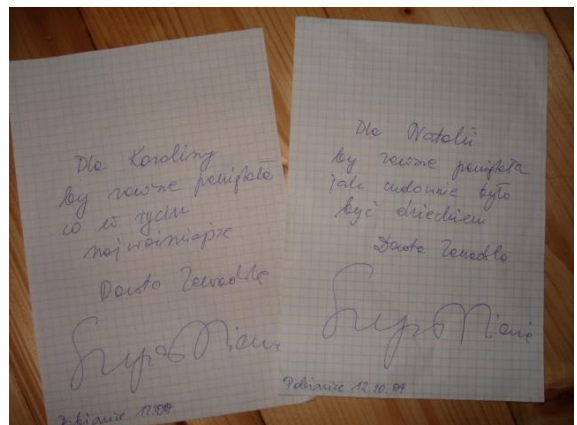 Dla Karoliny
by zawsze pamiętała
co w życiu
najważniejsze
Dorota Zawadzka
Pabianice 12.10.09
Dla Natalii
by zawsze pamiętała
jak cudownie było
być dzieckiem
Dorota Zawadzka
Super Niania
Pabianice 12.10.09